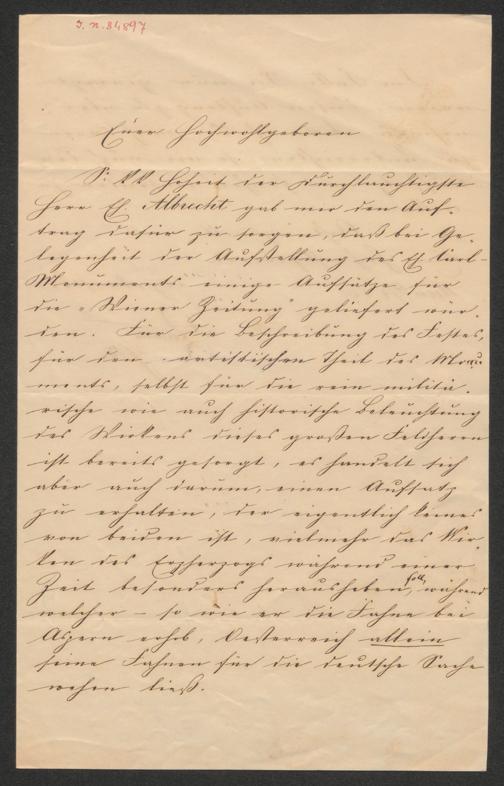 I. N. 84897
Euer Hochwohlgeboren
Sr. kk Hoheit der Durchlauchtigste
Herr Eh. Albrecht gab mir den Auf-
trag dafür zu sorgen, daß bei Ge-
legenheit der Aufstellung des Eh. Carl-
Monuments einige Aufsätze für
die „Wiener Zeitung" geliefert wür-
den. Für die Beschreibung des Festes,
für den artistischen Theil des Monu-
ments, selbst für die rein militä-
rische wie auch historische Beleuchtung
des Wirkens dieses großen Feldherrn
ist bereits gesorgt, es handelt sich
aber auch darum, einen Aufsatz
zu erhalten, der eigentlich keines
von beiden ist, vielmehr das Wir-
ken des Erzherzogs während einer
Zeit besonders herausheben soll, während
welcher – so wie er die Fahne bei
Aspern erhob, Oesterreich allein
seine Fahnen für die deutsche Sache
wehen ließ.